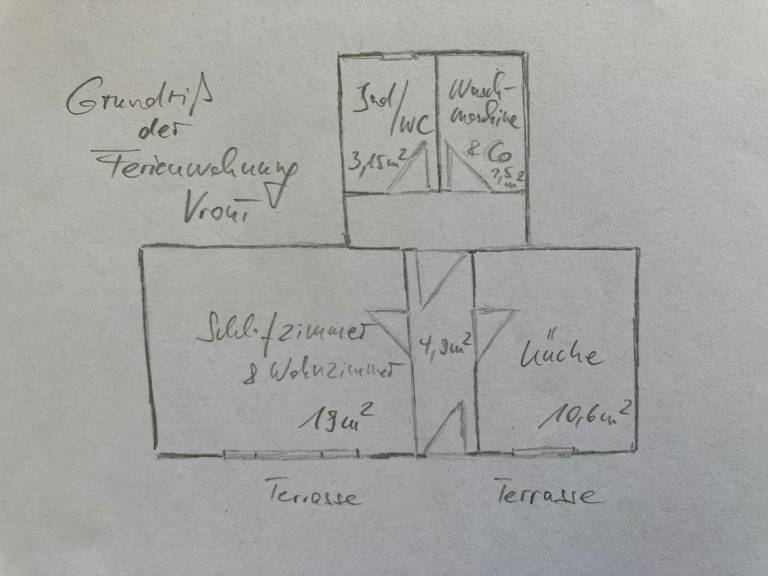 Grundriß
der
Ferienwohnung
Vroni
Bad/
WC
3,15m²
Wasch-
maschine
& Co
m²
Schlafzimmer
& Wohnzimmer
19m²
4,9m²
Küche
10,6m²
Terrasse
Terrasse